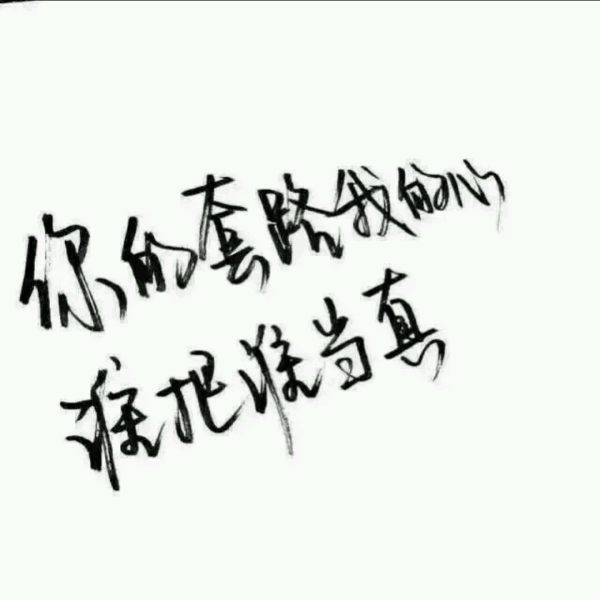 你的套路我的心
谁把谁当真